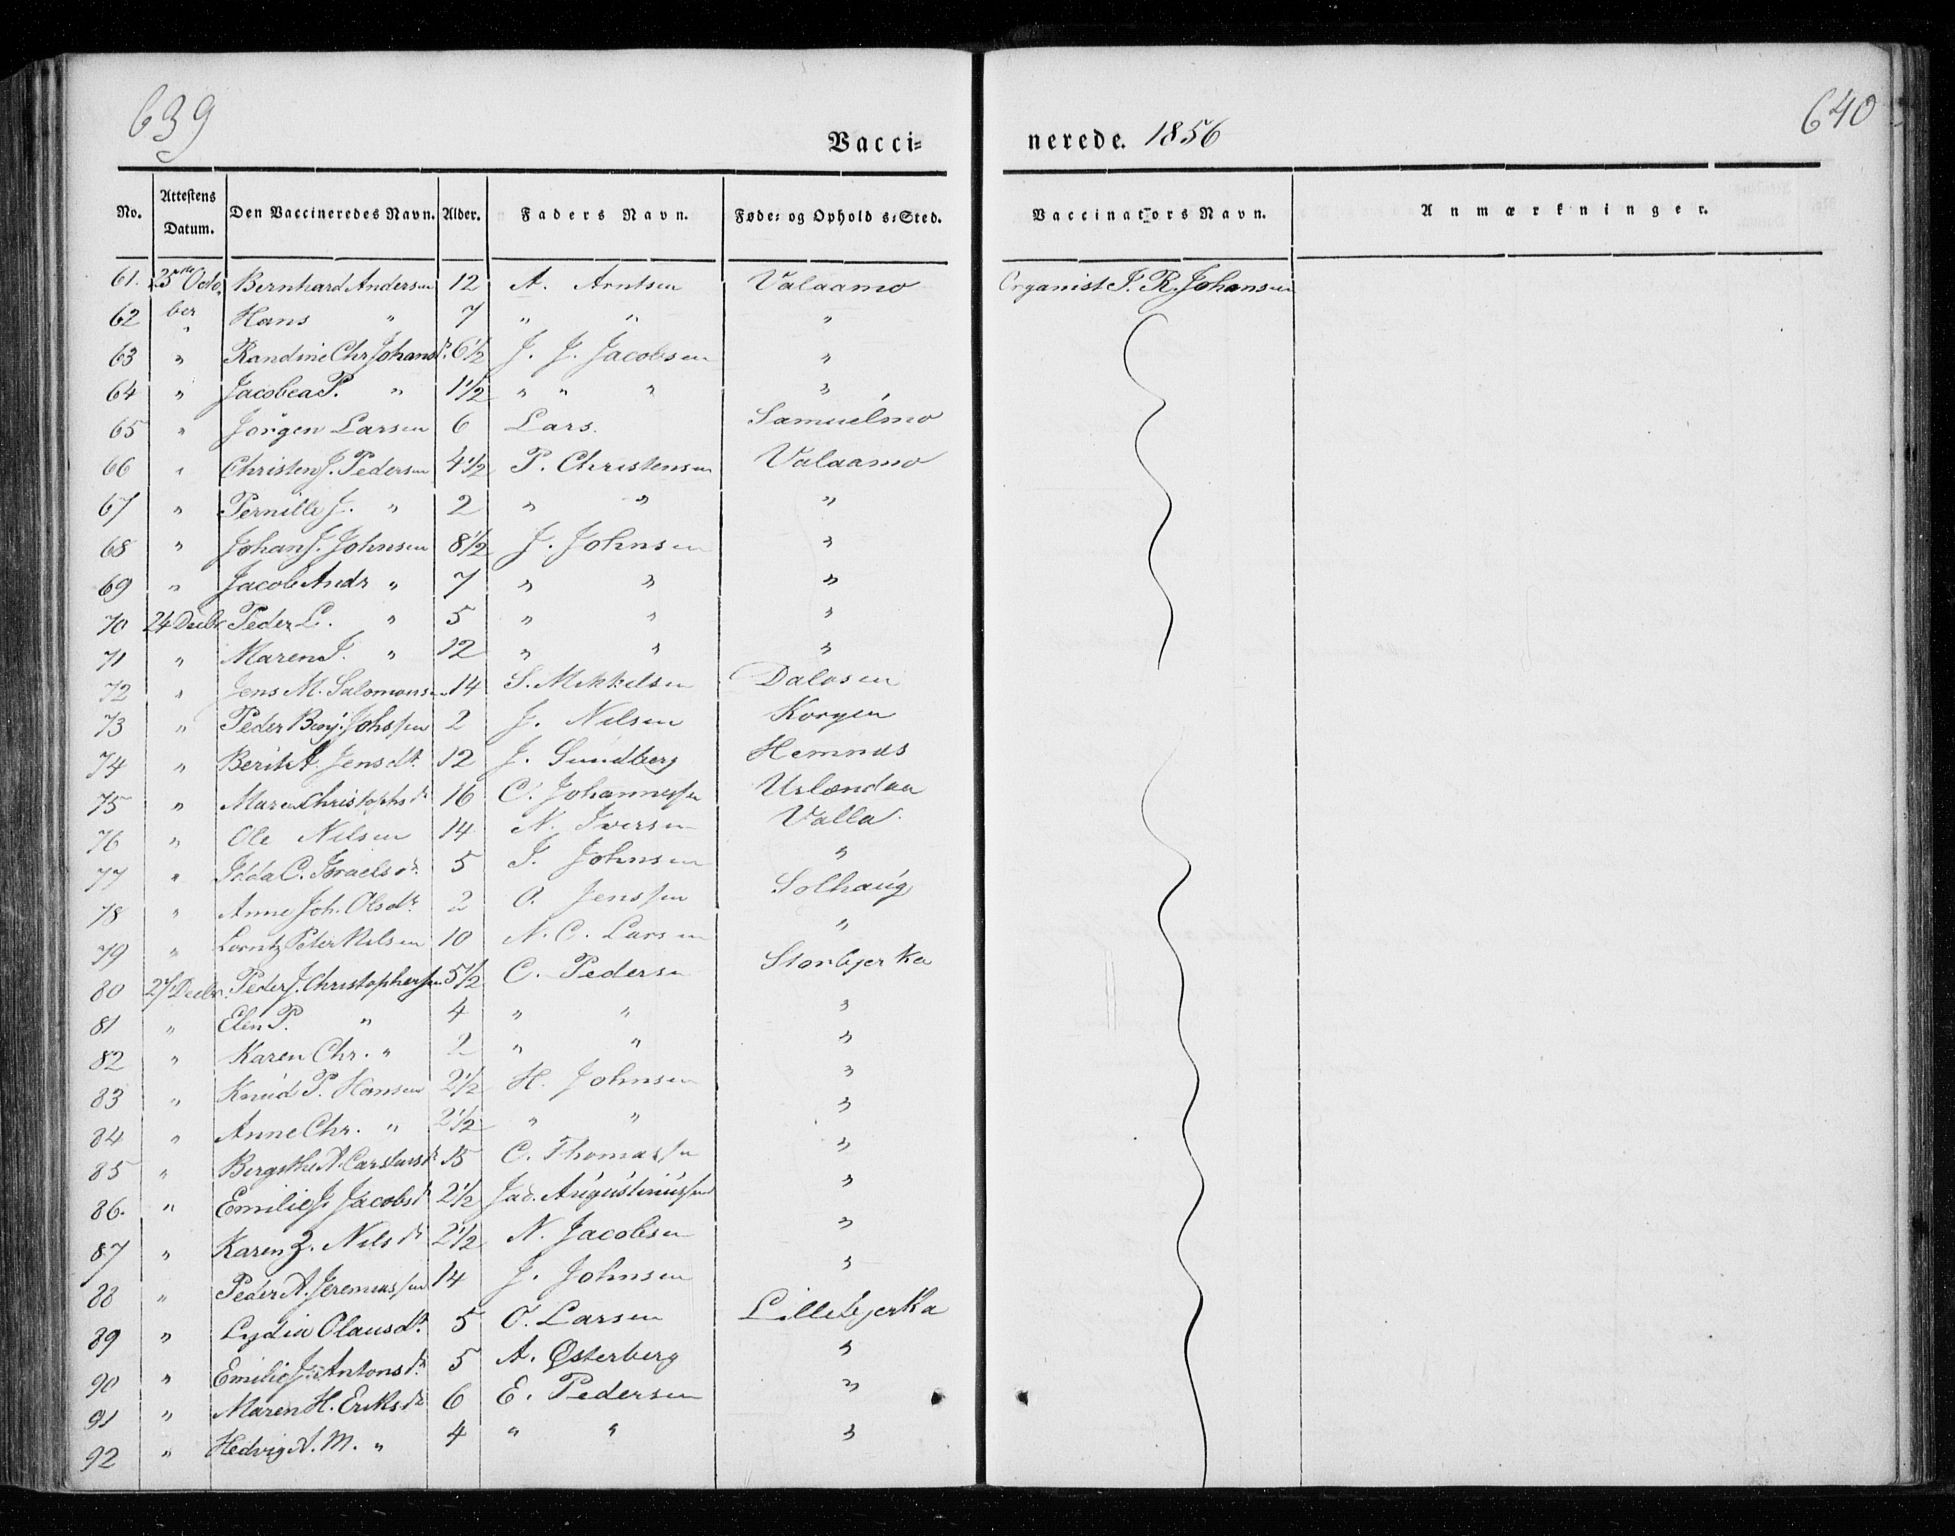 639
640
Vacci=
nerede. 1856
No. Attestens Datum. Den Vaccineredes Navn. Alder. Faders Navn. Føde= og Opholds=Sted. Vaccinators Navn. Anmærkninger.
61. 25de Octo Bernhard Andersen 12 A. Arntsen Valaamo Organist J. R. Johansen
62 ber " Hans " 7 " " "
63 " Randine Chr Johansd. 6 1/2 J. J. Jacobsen "
64 " Jacobea P. " 1 1/2 " " " "
65 " Jørgen Larsen 6 Lars. Samuelmo
66 " Christen J. Pedersen 4 1/2 P. Christensen Valaamo
67 " Pernille J. " 2 " " "
68 " Johan J. Johnsen 8 1/2 J. Johnsen "
69 " Jacob Andr " 7 " " "
70 24 Decbr Peder L. " 5 " " "
71 " Maren J. " 12 " " "
72 " Jens M. Salomonsen 14 S. Mikkelsen Dalosen
73 " Peder Benj. Johssen 2 J. Nilsen Korgen
74 " Berit A. Jensdr. 12 J. Sundberg Hemnæs
75 " Maren Christophsdr 16 C. Johannessen Uslændaa
76 " Ole Nilsen 14 N. Iversen Valla.
77 " Idda C. Israelsdr. 5 I. Johnsen "
78 " Anne Joh. Olsdr. 2 O. Jenssen Solhaug
79 " Lorntz Peter Nilsen 10 N. C. Larsen "
80 27 Decbr. Peder J. Christophersen 5 1/2 C. Pedersen Storbjerka
81 " Elen P. " 4 " " "
82 " Karen Chr. " 2 " " "
83 " Knud P. Hansen 2 1/2 H. Johnsen "
84 " Anne Chr. " 2 1/2 " " "
85 " Bergithe A. Carstensdr 15 C. Thomassen "
86. " Emilie J. Jacobsdr 2 1/2 Jac. Augustinussen "
87 " Karen Z. Nilsdr 2 1/2 N. Jacobsen "
88 " Peder A. Jeremiassen 14 J. Johnsen "
89 " Lydia Olausdr. 5 O. Larsen Lillebjerka
90 " Emilie J. Antonsdr. 5 A. Østerberg "
91 " Maren H. Eriksdr 6 E. Pedersen "
92 " Hedvig A. M. " 4 " " "